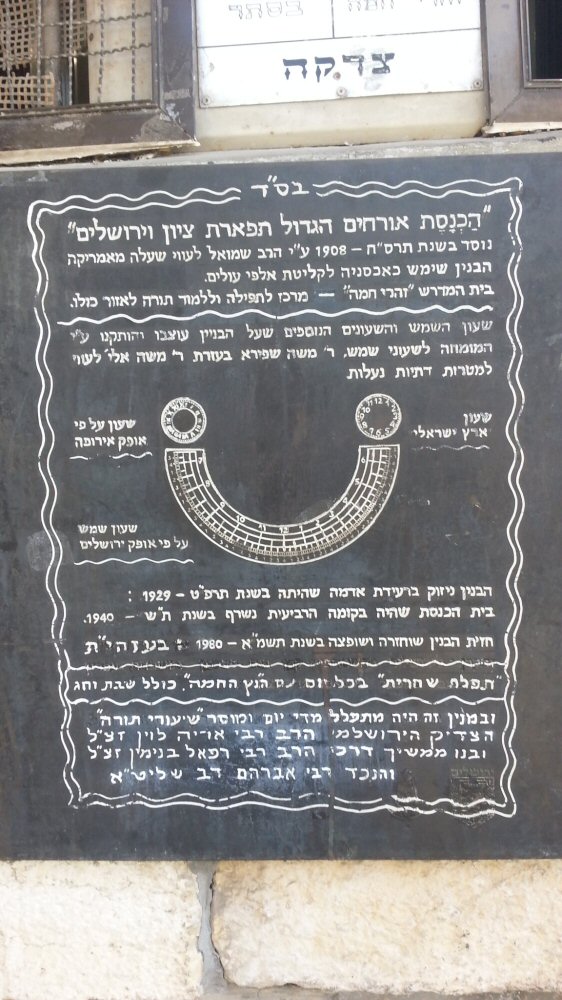 בסתר
צדקה
בס"ד
"הַכְנָסַת אורחים הגדול תפארת ציון וירושלים"
נוסד בשנת תרס"ח – 1908 ע"י הרב שמואל לעווי שעלה מאמריקה
הבנין שימש כאכסניה לקליטת אלפי עולים.
בית המדרש "זהרי חמה" – מרכז לתפילה וללמוד תורה לאזור כולו.
שעון השמש והשעונים הנוספים שעל הבניין עוצבו והותקנו ע"י
המומחה לשעוני שמש, ר' משה שפירא בעזרת ר' משה אלי' לעווי
למטרות דתיות נעלות
שעון
"ארץ ישראלי"
שעון על פי
אופק אירופה
שעון שמש
על פי אופק ירושלים
הבנין ניזוק ברעידת אדמה שהיתה בשנת תרפ"ט – 1929 :
בית הכנסת שהיה בקומה הרביעית נשרף בשנת ת"ש – 1940.
חזית הבנין שוחזרה ושופצה בשנת תשמ"א – 1980 בעזהי"ת
"תפלת שחרית" בכל יום עם הנץ החמה", כולל שבת וחג
ובמנין זה היה מתפלל מדי יום ומוסר "שיעורי תורה"
הצדיק הירושלמי הרב רבי אריה לוין זצ"ל
ובנו ממשיך דרכו הרב רבי רפאל בנימין זצ"ל
והנכד רבי אברהם דב שליט"א